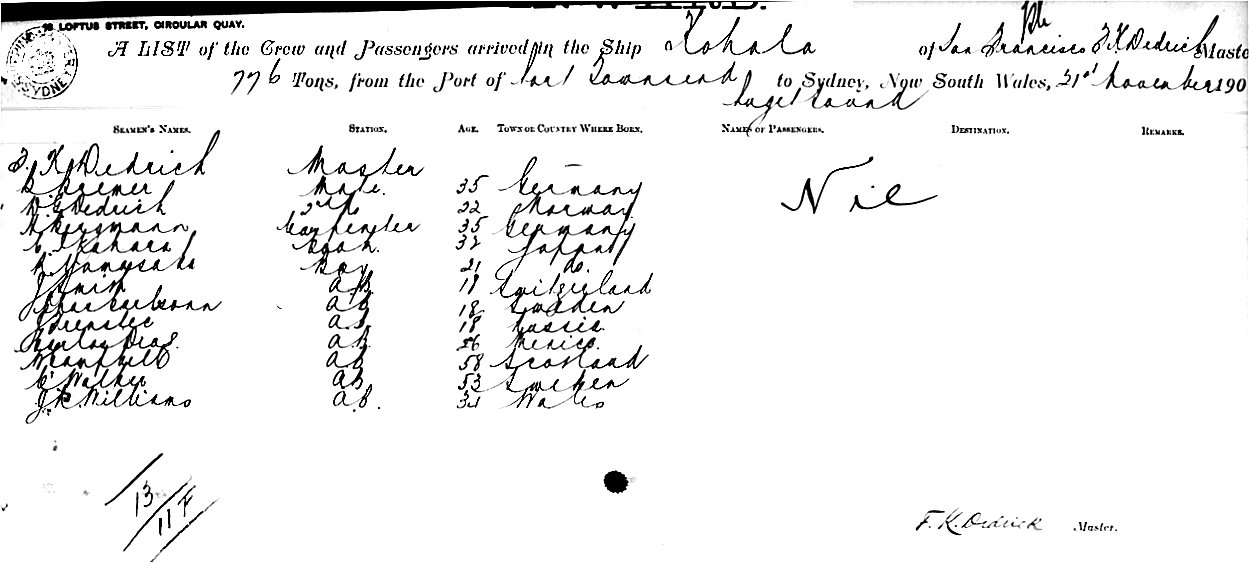 18 LOFTUS STREET, CIRCULAR QUAY.
SYDNEY
A LIST of the Crew and Passengers arrived in the Ship Kohala of San Francisco F K Dedrich Master
776 Tons, from the Port of Port Townsend to Sydney, New South Wales, 21st November 190
Puget Sound
SEAMEN'S NAMES. STATION. AGE. TOWN OR COUNTRY WHERE BORN. NAMES OF PASSENGERS. DESTINATION. REMARKS.
F. K Dedrich Master —
Mate. 35 Germany Nil
Dedrich 22 Norway
Bergmann Carpenter 35 Germany
32 Japan
Boy 21 do.
J Smith A.B. 18 Switzerland
A.B. 18 Sweden
A.B. 18 Russia
A.B. 26 Mexico.
Campbell A.B. 58 Scotland
C Walker A.B. 53 Sweden
J. Williams A.B. Wales
13
11 F
F. K. Dedrick Master.